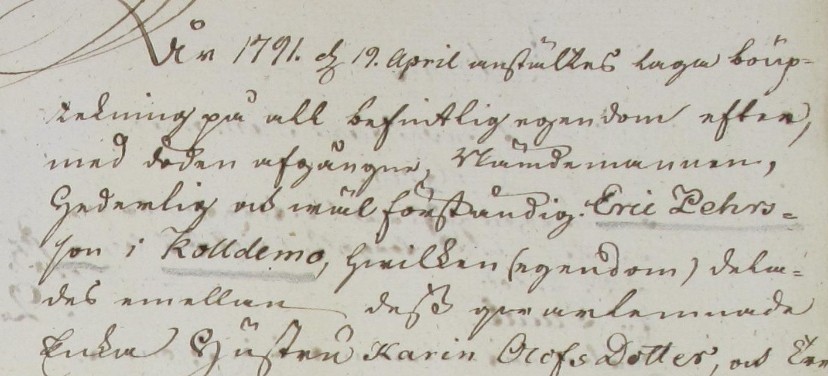 År 1791. d. 19. April anställtes laga boup-
tekning på all befintlig egendom efter,
med döden afgångne, Nämdemannen,
Hederlig och wäl förståndig. Eric Pehrs-
son i Kolldemo, hwilken (egendom) dela-
des emellan dess qvarlemnade
Enka Hustru Karin Olofs Dotter, och